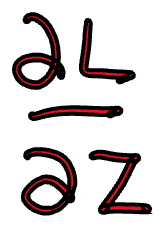 ∂L
∂z